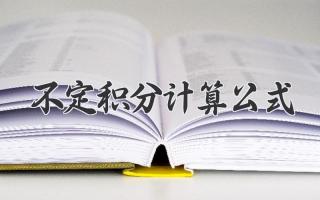 不定积分计算公式